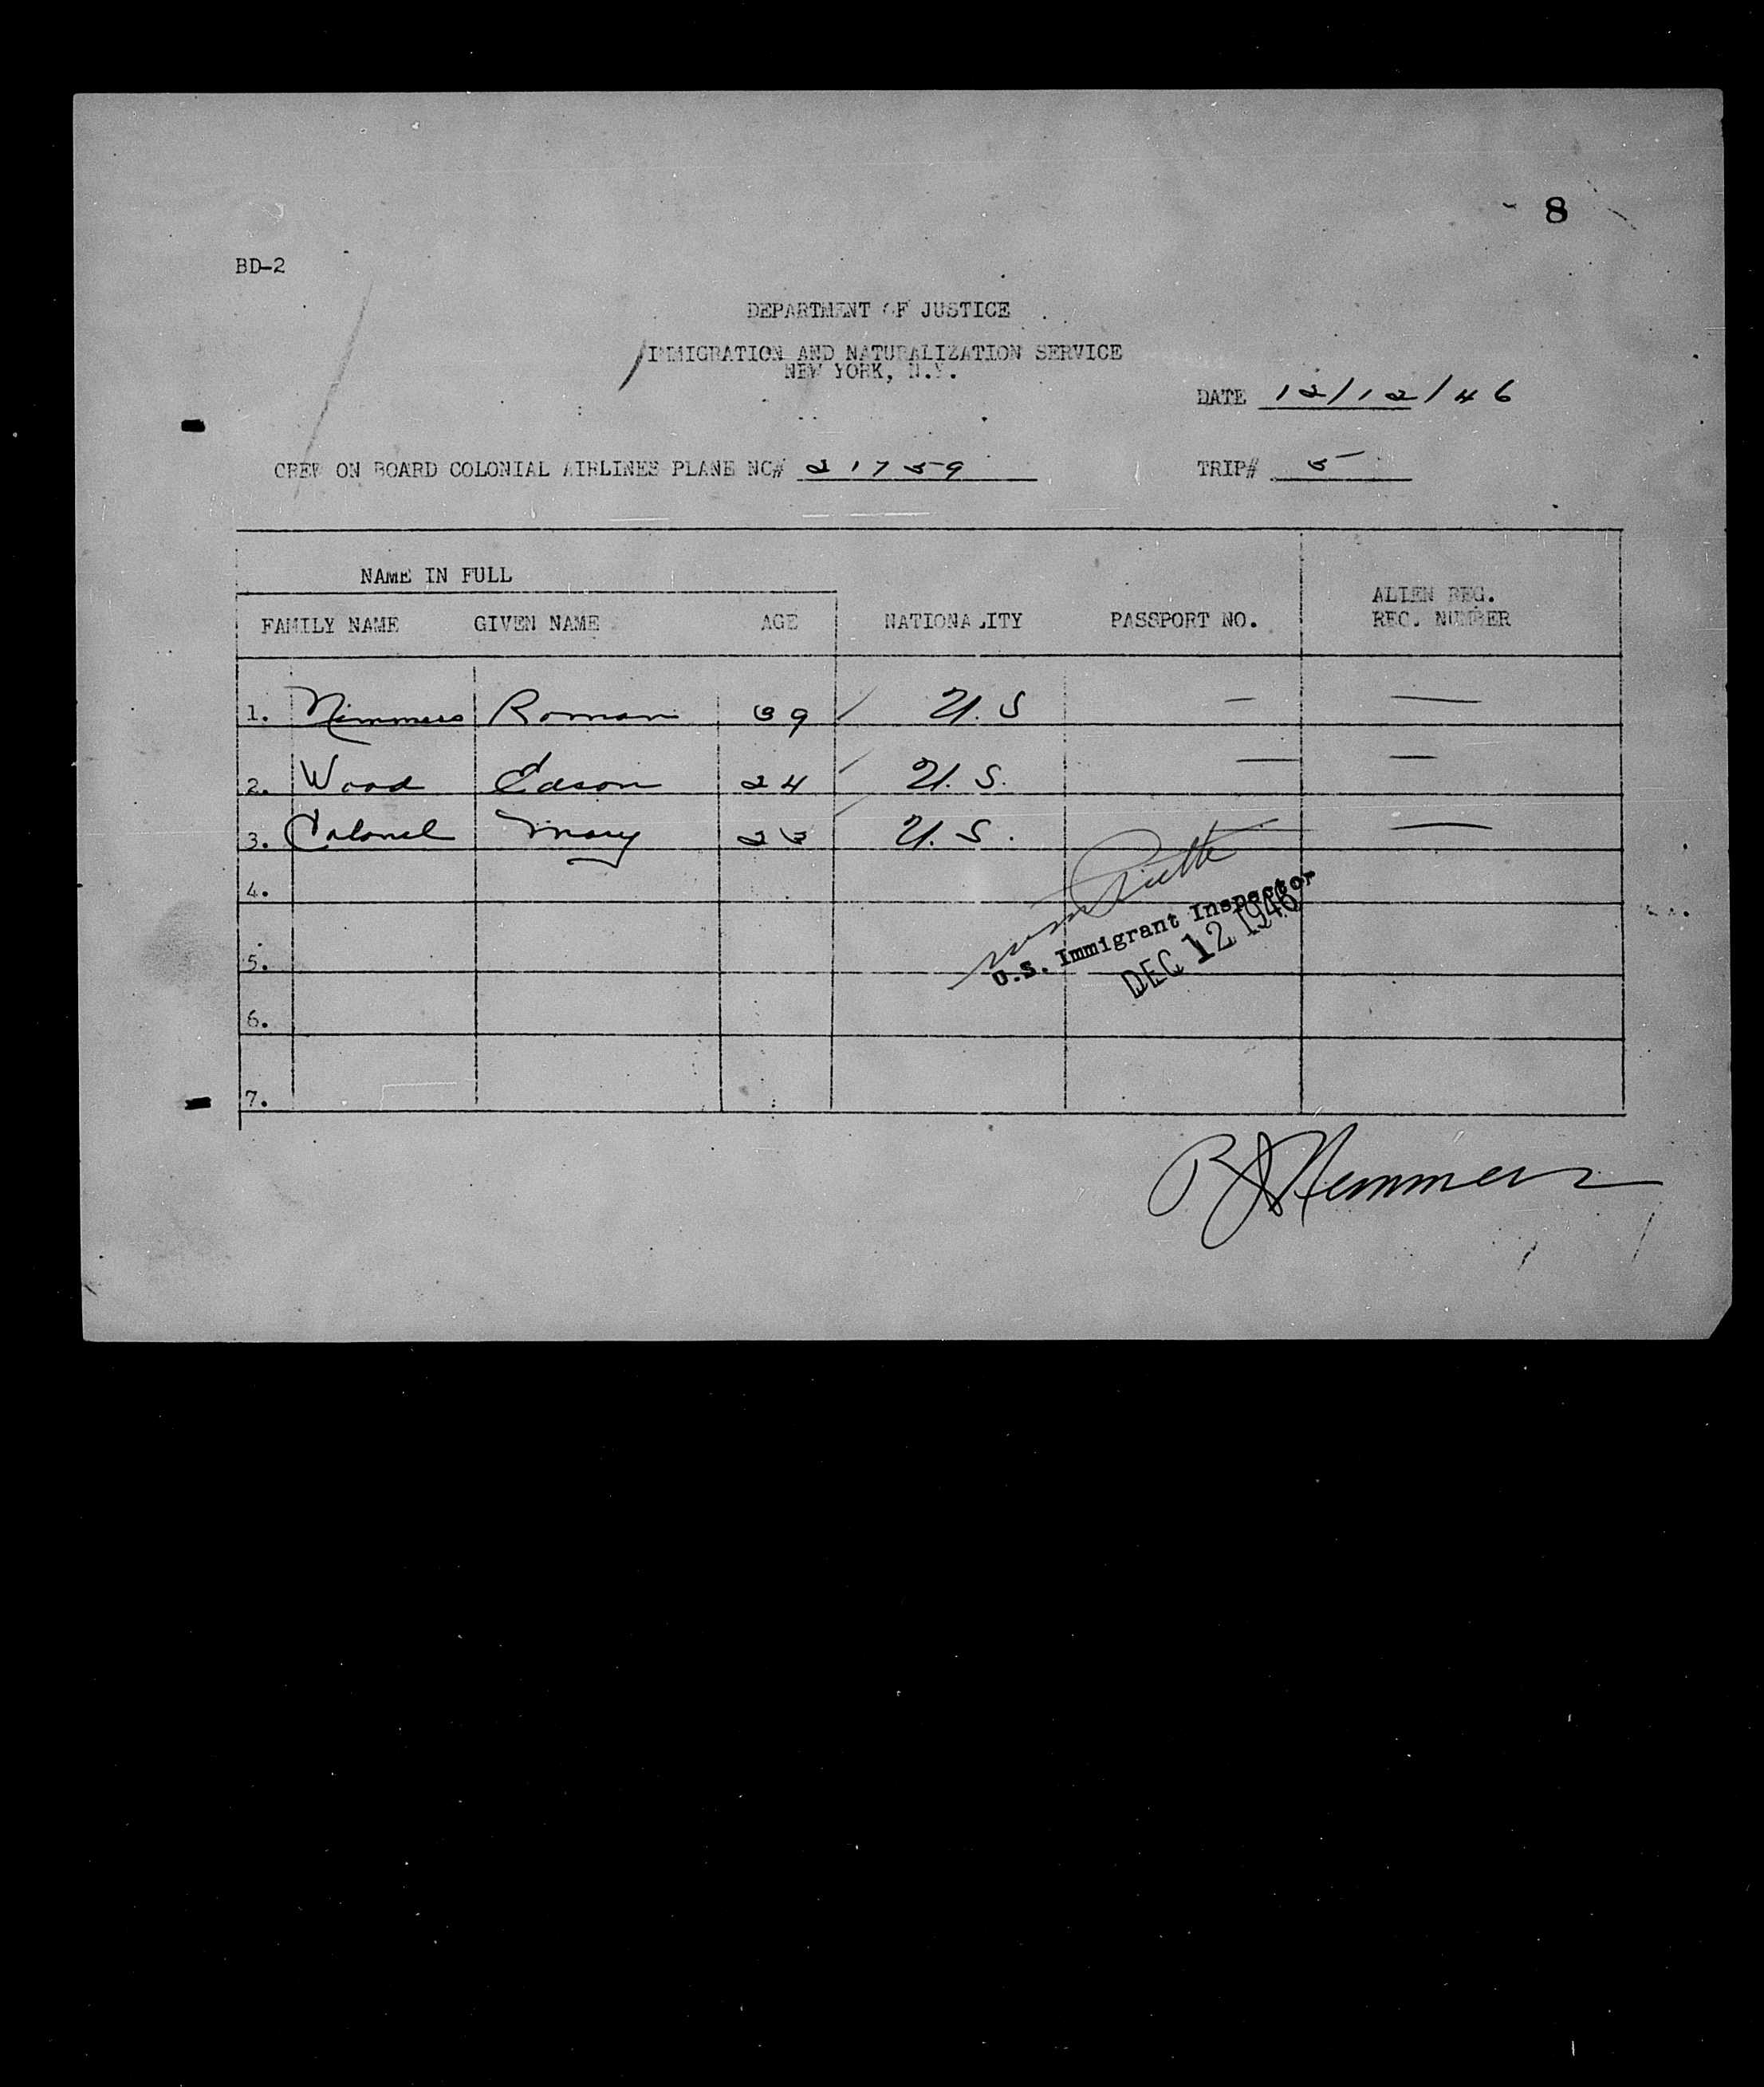 8
BD-2
DEPARTMENT OF JUSTICE
IMMIGRATION AND NATURALIZATION SERVICE
NEW YORK, N.Y.
DATE 12/12/46
CREW ON BOARD COLONIAL AIRLINES PLANE NC# 21759 TRIP# 5
NAME IN FULL
FAMILY NAME GIVEN NAME AGE NATIONALITY PASSPORT NO. ALIEN REG. REC. NUMBER
1. Nemmers Roman 39 U.S — —
2. Wood Edson 24 U.S. — —
3. Colonel Mary 23 U.S. — —
4.
U.S. Immigrant Inspector
DEC 12 1946
5.
6.
7.
RJNemmers